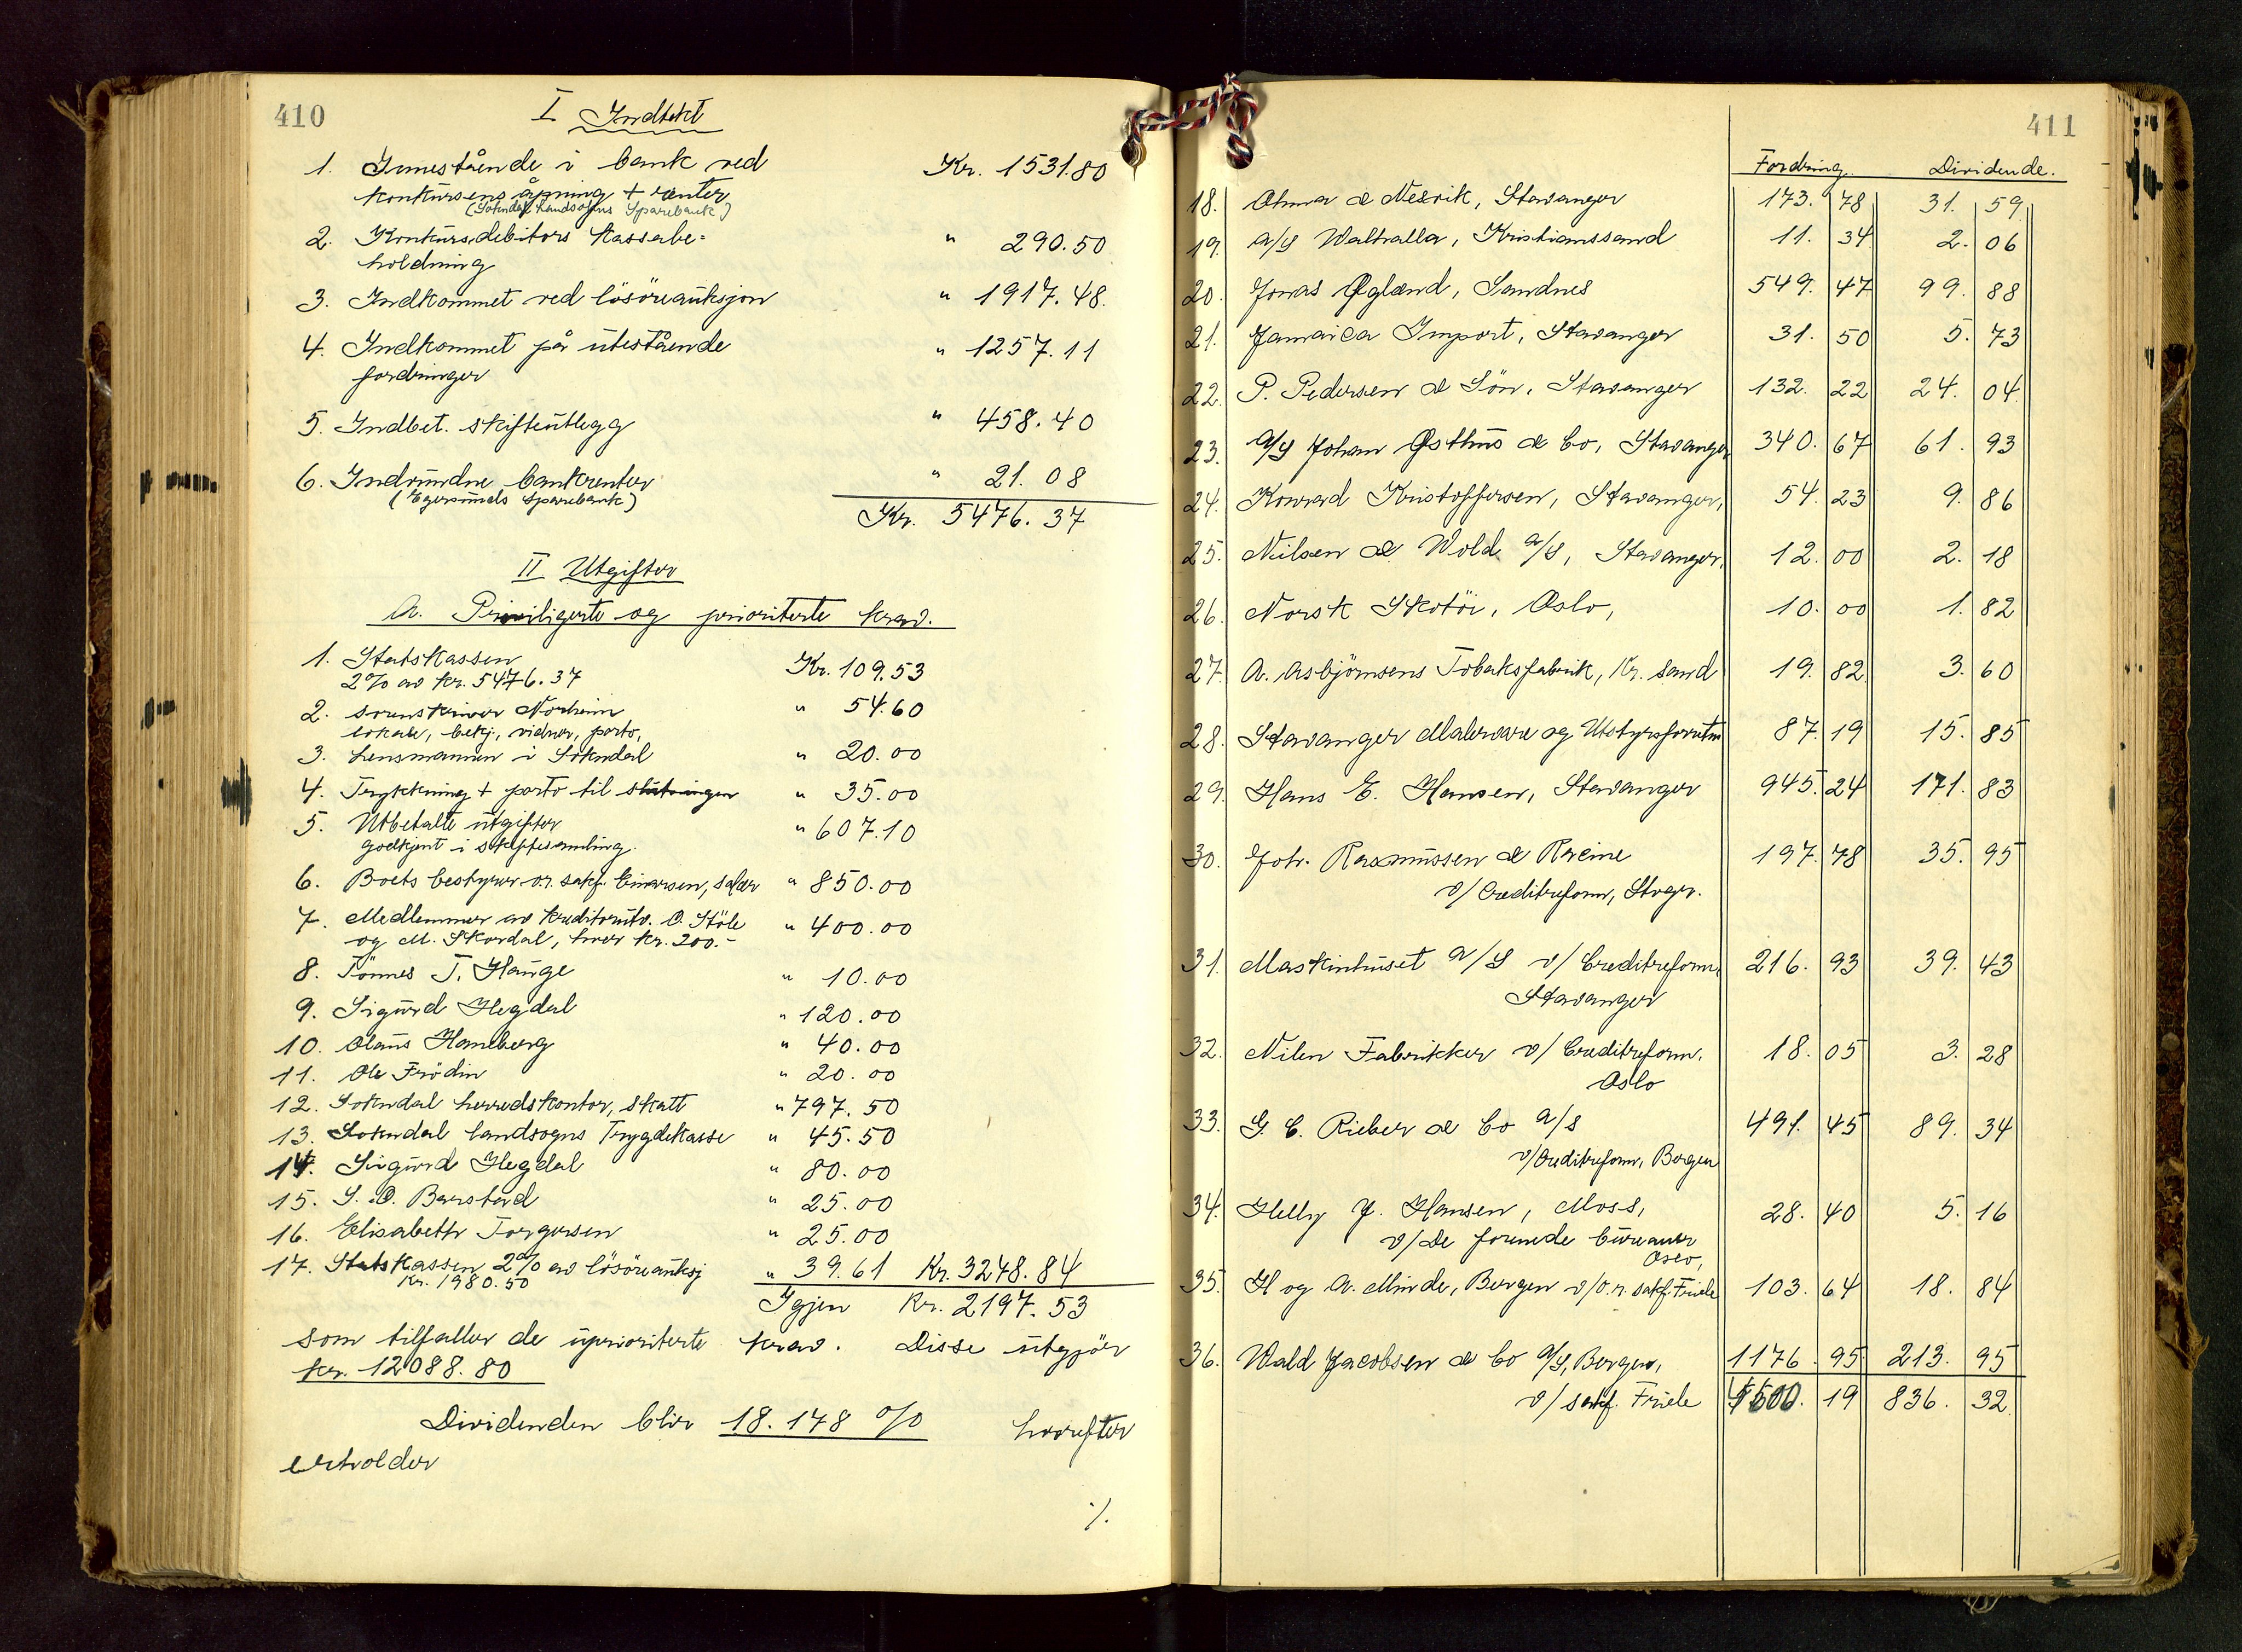 410
I Indtekt
1. Innestående i bank ved Kr. 1531.80
konkursens åpning + renter
(Sokndal Landsogns Sparebank)
2. Konkursdebitors kassabe= " 290.50
holdning
3. Indkommet ved lösöreauksjon " 1917.48.
4. Indkommet på utestående " 1257.11
fordringer
5. Indbet. skifteutlegg " 458.40
6. Indvundne bankrenter " 21.08
(Egersunds Sparebank)
Kr. 5476.37
II Utgifter
A. Priviligerte og prioriterte krav.
1. Statskassen Kr. 109.53
2% av kr. 5476.37
2. sorenskriver Norheim " 54.60
lokale, bekj., vidner, porto,
3. Lensmannen i Sokndal " 20.00
4. Trykkning + porto til slutningen " 35.00
5. Utbetalte utgifter " 607.10
godkjent i skiftesamling.
6. Boets bestyrer o.r. sakf. Einarsen, salær " 850.00
7. Medlemmer av kreditorutv. O. Stöle " 400.00
og M. Skordal, hver kr. 200.-
8. Tönnes T. Hauge " 10.00
9. Sigurd Hegdal " 120.00
10. Olaus Hamberg " 40.00
11. Ole Frödin " 20.00
12. Sokndal herredskontor, skatt " 797.50
13. Sokndal landsogns Trygdekasse " 45.50
14. Sigurd Hegdal " 80.00
15. S. O. Barstad " 25.00
16. Elisabeth Torgersen " 25.00
17. Statskassen 2% av lösöreauksj " 39.61 Kr. 3248.84
Kr. 1980.50
Igjen Kr. 2197.53
som tilfaller de uprioriterte krav. Disse utgjör
kr. 12088.80
Dividenden blir 18.178 % hvorefter
erholder
·/.
411
Fordring. Dividende.
18. Ohma & Nesvik, Stavanger 173.78 31.59.
19. A/S Walhalla, Kristianssand 11.34 2.06
20. Jonas Øglænd, Sandnes 549.47 99.88
21. Jamaica Import, Stavanger 31.50 5.73
22. P. Pedersen & Sön, Stavanger 132.22 24.04.
23. A/S Johan Østhus & Co, Stavanger 340.67 61.93
24. Konrad Kristoffersen, Stavanger, 54.23 9.86
25. Nilsen & Wold A/S, Stavanger, 12.00 2.18
26. Norsk Skotöi, Oslo, 10.00 1.82
27. A. Asbjörnsens Tobaksfabrik, Kr. sand 19.82 3.60
28. Stavanger Malervare og Utstyrsforretn 87.19 15.85
29. Hans E. Hansen, Stavanger 945.24 171.83
30. Joh. Rasmussen & Racine 197.78 35.95
v/ Creditreform, Stvgr.
31. Maskinhuset A/S v/ Creditreform, 216.93 39.43
Stavanger
32. Nilen Fabrikker v/ Creditreform. 18.05 3.28
Oslo
33. G. C. Rieber & Co A/S 491.45 89.34
v/ Creditreform, Bergen
34. Helly J. Hansen, Moss, 28.40 5.16
v/ De forenede bureauer
Oslo,
35. H og A. Minde, Bergen v/ o.r. sakf. Friele 103.64 18.84
36. Wald Jacobsen & Co A/S, Bergen, 1176.95 213.95
v/ sakf. Friele 4500.19 836.32